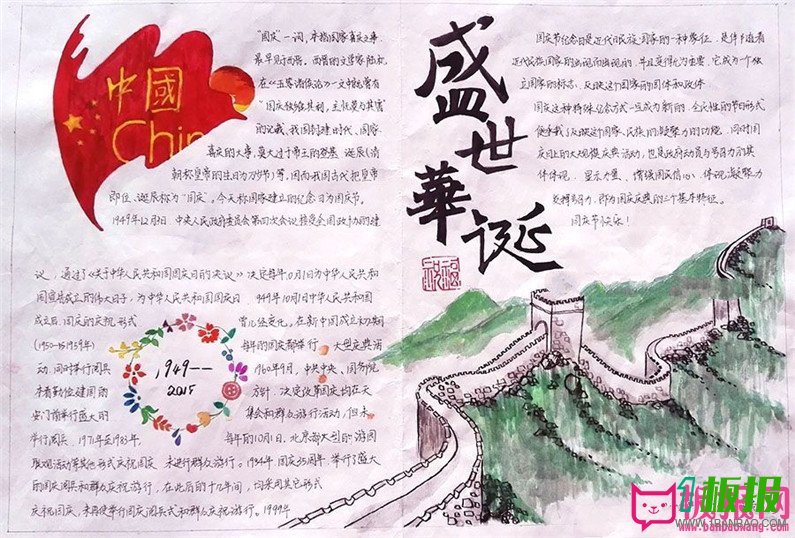 中國
China
"国庆"一词，本指国家喜庆之事，
最早见于西晋。西晋的文学家陆机
在《五等诸侯论》一文中就曾有
"国庆独飨其利，主忧莫与其害"
的记载，我国封建时代、国家
喜庆的大事，莫大过于帝王的登基、诞辰(清
朝称皇帝的生日为万岁节)等。因而我国古代把皇帝
即位、诞辰称为"国庆"。今天称国家建立的纪念日为国庆节。
1949年12月3日，中央人民政府委员会第四次会议接受全国政协的建
议，通过了《关于中华人民共和国国庆日的决议》决定每年10月1日为中华人民共和
国宣告成立的伟大日子，为中华人民共和国国庆日
1949年10月1日中华人民共和国
成立后，国庆的庆祝形式
曾几经变化。在新中国成立初期
(1950—1959年)
每年的国庆都举行
大型庆典活
动，同时举行阅兵
1960年9月，中共中央、国务院
本着勤俭建国的
方针，决定改革国庆
安门前举行盛大的
集会和群众游行活动，但未
举行阅兵，1971年至1983年，
每年的10月1日，北京都大型的游园
联欢活动等其他形式庆祝国庆，未进行群众游行，1984年，国庆35周年，举行了盛大
的国庆阅兵和群众庆祝游行，在此后的十几年间，均采用其它形式
庆祝国庆，未再使举行国庆阅兵式和群众庆祝游行。1999年
1949——
2015
盛世華诞
国庆节纪念日是近代民族国家的一种象征，是伴随着
近代民族国家的出现而出现的，并且变得尤为重要，它成为一个独
立国家的标志，反映这个国家的国体和政体
国庆这种特殊纪念方式一旦成为新的、全民性的节日形式，
便承载了反映这个国家、民族的凝聚力的功能，同时国
庆日上的大规模庆典活动，也是政府动员与号召力的具
体体现，显示力量、增强国民信心，体现凝聚力
发挥号召力，即为国庆庆典的三个基本特征。
国庆节快乐！
板报网
www.banbaowang.com
1板报
WWW.1BANBAO.COM